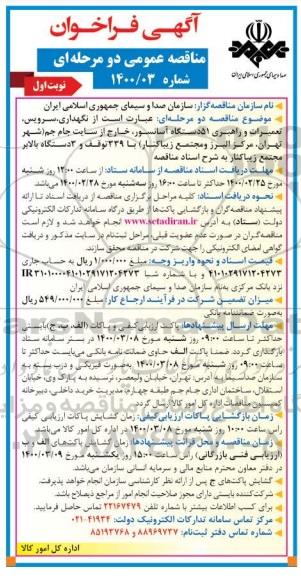 آگهی فراخوان
مناقصه عمومی دو مرحله‌ای
شماره ۱۴۰۰/۰۳
نوبت اول
صدا و سیمای جمهوری اسلامی ایران
نام سازمان مناقصه‌گزار: سازمان صدا و سیمای جمهوری اسلامی ایران
موضوع مناقصه دو مرحله‌ای: عبارت است از نگهداری، سرویس،
تعمیرات و راهبری ۵۱ دستگاه آسانسور، خارج از سایت جام جم (شهر
تهران، مرکز البرز و مجتمع زیباکنار) با ۳۳۹ توقف و ۳ دستگاه بالابر
مجتمع زیباکنار به شرح اسناد مناقصه
مهلت دریافت اسناد مناقصه از سامانه ستاد: از ساعت ۱۲:۰۰ روز شنبه
مورخ ۱۴۰۰/۰۲/۲۵ حداکثر تا ساعت ۱۶:۰۰ روز سه‌شنبه مورخ ۱۴۰۰/۰۲/۲۸ می‌باشد.
نحوه دریافت اسناد: کلیه مراحل برگزاری مناقصه از دریافت اسناد تا ارائه
پیشنهاد مناقصه‌گران و بازگشایی پاکت‌ها از طریق درگاه سامانه تدارکات الکترونیکی
دولت (ستاد) به آدرس www.setadiran.ir انجام خواهد شد و لازم است
مناقصه‌گران در صورت عدم عضویت قبلی، مراحل ثبت‌نام در سایت مذکور و دریافت
گواهی امضای الکترونیکی را جهت شرکت در مناقصه محقق سازند.
قیمت اسناد و نحوه واریز وجه: مبلغ ۱/۰۰۰/۰۰۰ ریال به حساب جاری
نزد بانک مرکزی به‌نام سازمان صدا و سیمای جمهوری اسلامی ایران
میزان تضمین شرکت در فرآیند ارجاع کار: مبلغ ۵۴۹/۰۰۰/۰۰۰ ریال
به‌صورت ضمانتنامه بانکی
مهلت ارسال پیشنهادها: پاکت ارزیابی کیفی و پاکات (الف، ب، ج) بایستی
حداکثر تا ساعت ۰۹:۰۰ روز شنبه مورخ ۱۴۰۰/۰۳/۰۸ در بستر ستاد
زمان بازگشایی پاکات ارزیابی کیفی: زمان گشایش پاکات ارزیابی کیفی
راس ساعت ۱۰:۰۰ روز شنبه مورخ ۱۴۰۰/۰۳/۰۸ در اداره کل امور کالا می‌باشد.
زمان مناقصه و محل قرائت پیشنهادها: زمان گشایش پاکت‌های الف و ب
(ارزیابی فنی بازرگانی) راس ساعت ۱۵:۰۰ روز یکشنبه مورخ ۱۴۰۰/۰۳/۰۹
در دفتر معاون محترم منابع مالی و سرمایه انسانی سازمان می‌باشد.
گشایش پاکت‌های ج پس از ارائه نظر کارشناسی سازمان انجام خواهد پذیرفت.
شرکت‌کننده بایستی دارای مجوز صلاحیت انجام امور از مراجع ذیصلاح باشد.
برای کسب اطلاعات بیشتر با شماره تلفن ۲۲۱۶۷۴۷۹ تماس حاصل فرمایید.
مرکز تماس سامانه تدارکات الکترونیک دولت: ۴۱۹۳۴-۰۲۱
شماره تماس دفتر ثبت‌نام: ۸۸۹۶۹۷۳۷ و ۸۵۱۹۳۷۶۸
اداره کل امور کالا